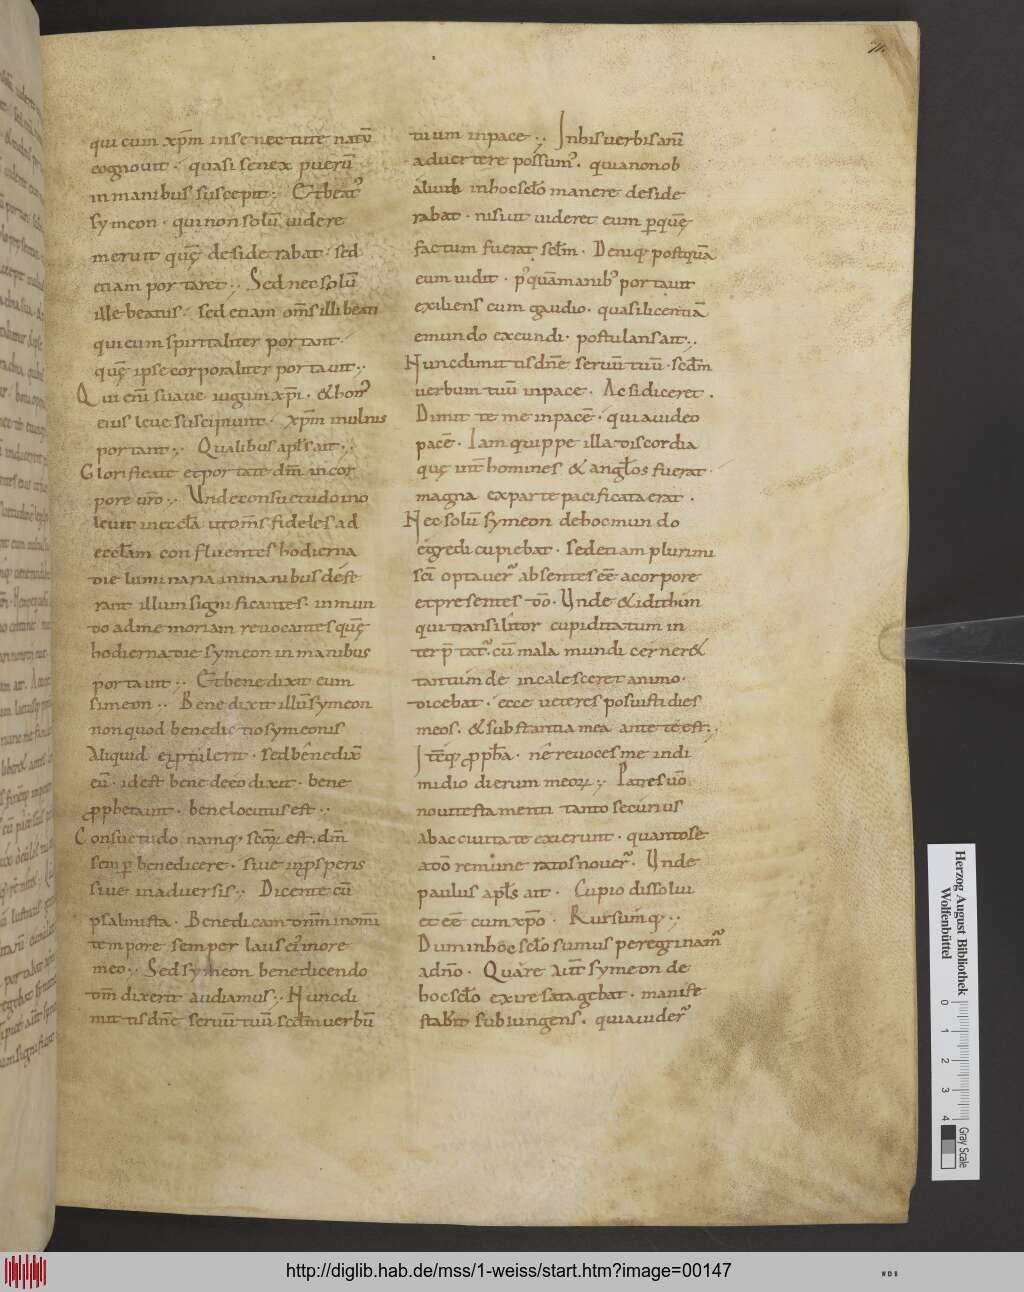 qui cum xp̄m in se nec ture natū
cognouit · quasi senex puerū
in manibus suscepit · Et beatꝰ
symeon · qui non solū uidere
meruit quę̄ desiderabat · sed
etiam portaret ·, Sed nec solū
ille beatus · sed etiam om̄s illi beati
qui cum spiritaliter portant ·
quę̄ ipse corporaliter portauit ·,
Qui eni suaue iugum xp̄i · & honꝰ
eius leue suscipiunt · xp̄m in ulnis
portant ·, Qualibus apl̄s ait ·,
Glorificate et portate dm̄ in cor
pore uro ·, Unde consuetudo ino
leuit in eccl̄a ut om̄s fideles ad
eccl̄am confluentes hodierna
die luminaria in manibus defe
rant illum significantes · in mun
do ad memoriam reuocantes quę̄
hodierna die symeon in manibus
portauit ·, Et benedixit eum
simeon ·, Benedixit illū symeon
non quod benedictio symeonis
aliquid ei p̄tulerit · sed benedix̄
eū · id est bene de eo dixit · bene
ꝓphetauit · bene locutus est ·,
Consuetudo namq; scōꝝ est · dm̄
semp̱ benedicere · siue in ꝓsperis
siue in aduersis ·, Dicente cū
psalmista · Benedicam dnm̄ in om̄i
tempore semper laus ei in ore
meo ·, Sed symeon benedicendo
dm̄ dixerit audiamus ·, Nunc di
mittis dn̄e seruū tuū scdm̄ uerbū
tuum in pace ·, In his uerbis ani
aduertere possumꝰ · quia non ob
aliud in hoc sclō manere deside
rabat · nisi ut uideret eum p̱ quę̄
factum fuerat sclm̄ · Deniq; postquā
eum uidit · p'quā manibꝰ portauit
exiliens cum gaudio · quasi licentiā
emundo exeundi · postulans ait ·,
Nunc dimittis dn̄e seruū tuū · scdm̄
uerbum tuū in pace · Ac si diceret ·
Dimitte me in pacē · quia uideo
pacē · Iam quippe illa discordia
quę int̄ homines & angl̄os fuerat ·
magna ex parte pacificata erat ·
Nec solū symeon de hoc mundo
egredi cupiebat · sed etiam plurimi
sci optauer̄ absentes eē a corpore
et presentes dō · Unde & idithun
qui transilitor cupiditatum in
terp̄tatꝰ · cū mala mundi cerner&
tantum de incalesceret animo ·
dicebat · ecce ueteres posuisti dies
meos · & substantia mea ante te est ·,
Itēq; ꝓph̄a · ne reuoces me in di
midio dierum meoꝝ ·, Patres uō
noui testamenti tanto securius
ab ac ciuitate exierunt · quanto se
a dō remuneratos nouer̄ · Unde
paulus apl̄s ait · Cupio dissolui
et eē cum xp̄o · Rursumq; ·,
Dum in hoc sclō sumus peregrinamꝰ
a dn̄o · Quare aut̄ symeon de
hoc sclō exire satagebat · manife
stabit subiungens · quia uiderꝰ
Herzog August Bibliothek
Wolfenbüttel
0 1 2 3 4
Gray Scale
http://diglib.hab.de/mss/1-weiss/start.htm?image=00147